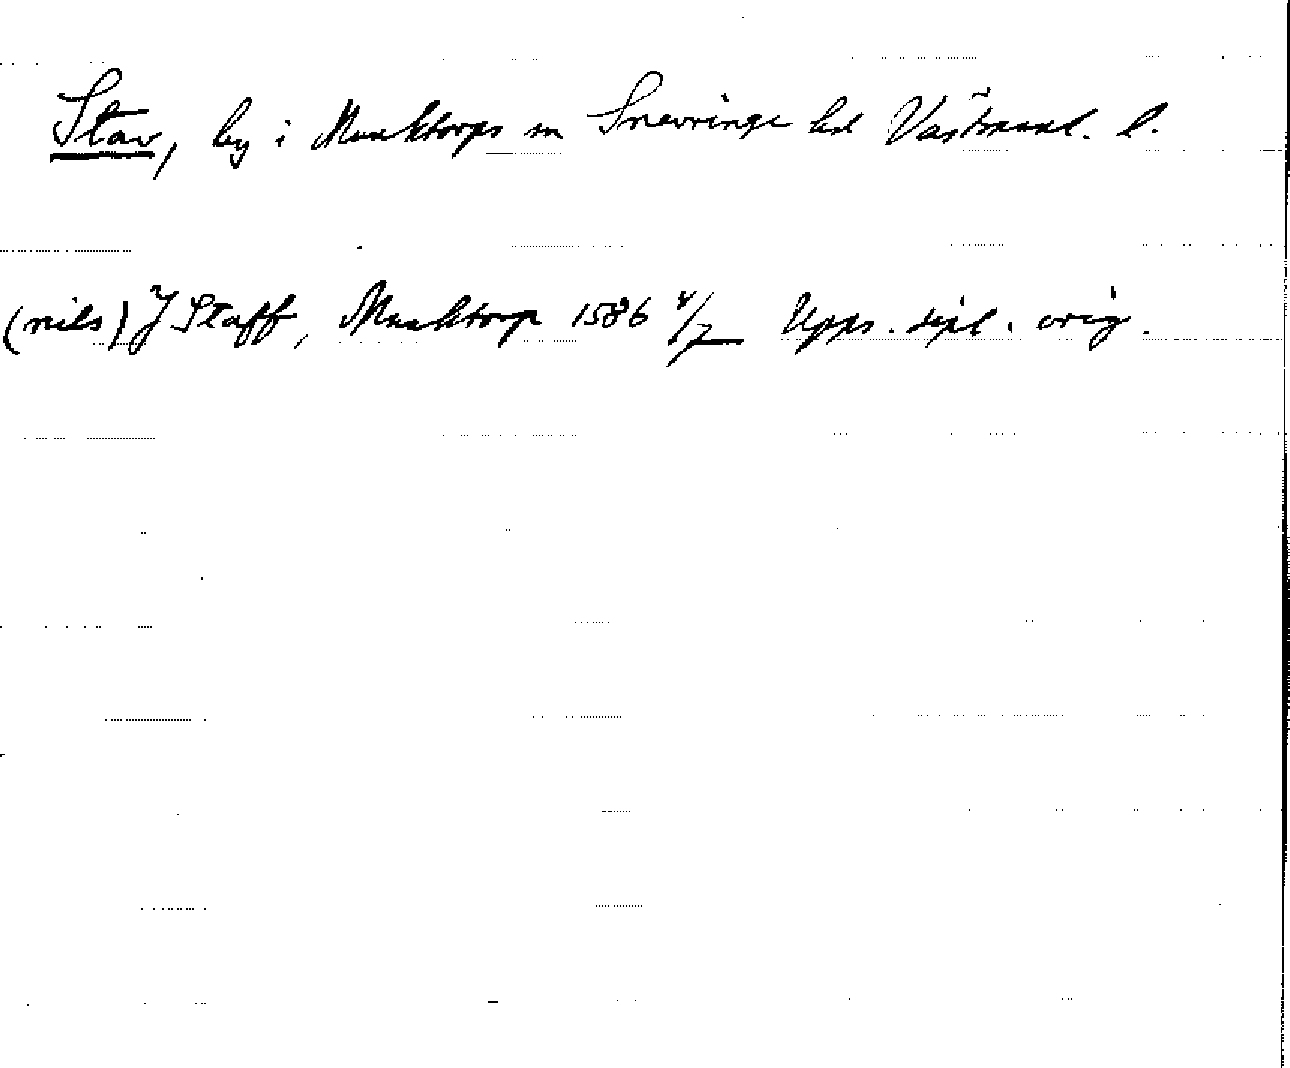 Stav, by i Munktorps sn Snevringe hd Västmanl. l.
(nils) J Staff, Munktorp 1586 /7 Upps. dipl. orig.